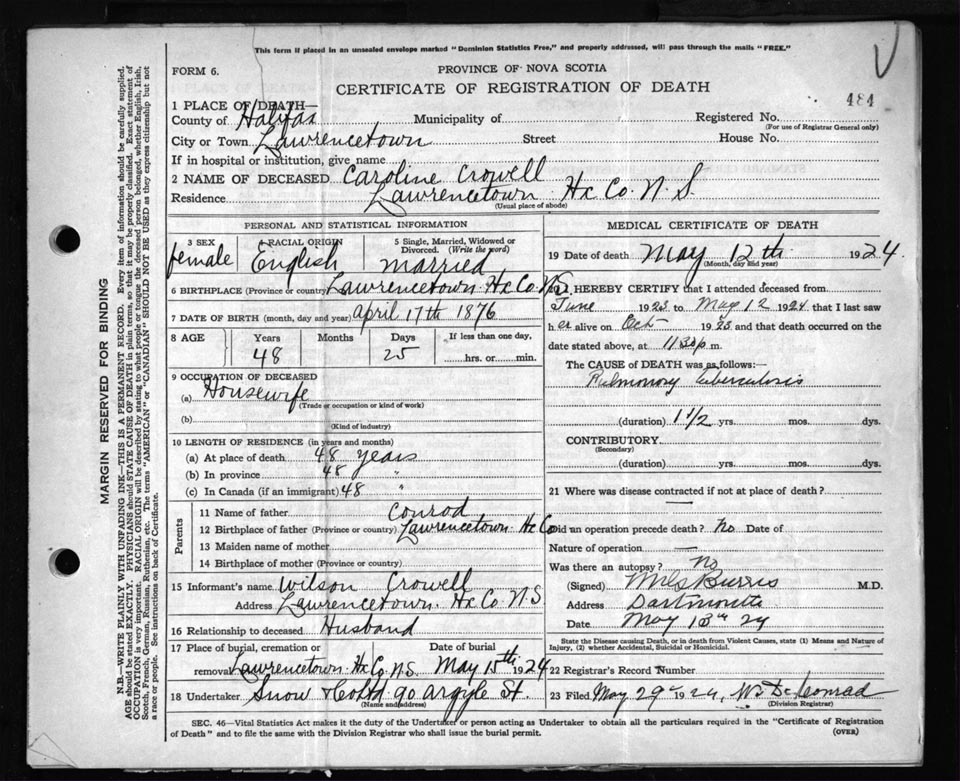 This form if placed in an unsealed envelope marked "Dominion Statistics Free," and properly addressed, will pass through the mails "FREE."
FORM 6.
PROVINCE OF NOVA SCOTIA
CERTIFICATE OF REGISTRATION OF DEATH
484
1 PLACE OF DEATH—
County of Halifax Municipality of Registered No.
(For use of Registrar General only)
City or Town Lawrencetown Street House No.
If in hospital or institution, give name
2 NAME OF DECEASED Caroline Crowell
Residence Lawrencetown Hx Co. N. S.
(Usual place of abode)
PERSONAL AND STATISTICAL INFORMATION
3 SEX 4 RACIAL ORIGIN 5 Single, Married, Widowed or Divorced. (Write the word)
female English married
6 BIRTHPLACE (Province or country) Lawrencetown Hx Co N.S.
7 DATE OF BIRTH (month, day and year) April 17th 1876
8 AGE Years Months Days If less than one day,
48 25 hrs. or min.
9 OCCUPATION OF DECEASED
(a) Housewife
(Trade or occupation or kind of work)
(b)
(Kind of industry)
10 LENGTH OF RESIDENCE (in years and months)
(a) At place of death 48 years
(b) In province 48 "
(c) In Canada (if an immigrant) 48 "
Parents
11 Name of father Conrod
12 Birthplace of father (Province or country) Lawrencetown Hx Co
13 Maiden name of mother
14 Birthplace of mother (Province or country)
15 Informant's name Wilson Crowell
Address Lawrencetown. Hx Co N S
16 Relationship to deceased Husband
17 Place of burial, cremation or removal Date of burial
Lawrencetown Hx Co. N.S. May 15th 1924
18 Undertaker Snow & Co Ltd 90 Argyle St.
(Name and address)
MEDICAL CERTIFICATE OF DEATH
19 Date of death May 12th 1924.
(Month, day and year)
I HEREBY CERTIFY that I attended deceased from
June 1923 to May 12 1924 that I last saw
h er alive on Oct 1923 and that death occurred on the
date stated above, at 1130 p m.
The CAUSE OF DEATH was as follows:—
Pulmonary tuberculosis
(duration) 1 1/2 yrs. mos. dys.
CONTRIBUTORY
(Secondary)
(duration) yrs. mos. dys.
21 Where was disease contracted if not at place of death?
Did an operation precede death? No Date of
Nature of operation —
Was there an autopsy? No
(Signed) Burris M.D.
Address Dartmouth
Date May 13th 24
State the Disease causing Death, or in death from Violent Causes, state (1) Means and Nature of
Injury, (2) whether Accidental, Suicidal or Homicidal.
22 Registrar's Record Number
23 Filed May 29th 1924, Conrad
(Division Registrar)
SEC. 46—Vital Statistics Act makes it the duty of the Undertaker or person acting as Undertaker to obtain all the particulars required in the "Certificate of Registration
of Death" and to file the same with the Division Registrar who shall issue the burial permit.
(OVER)
MARGIN RESERVED FOR BINDING
N.B.—WRITE PLAINLY WITH UNFADING INK—THIS IS A PERMANENT RECORD. Every item of information should be carefully supplied.
AGE should be stated EXACTLY. PHYSICIANS should STATE CAUSE OF DEATH in plain terms, so that it may be properly classified. Exact statement of
OCCUPATION is very important. RACIAL ORIGIN will be described by stating to what people or tongue the deceased person belonged, whether English, Irish,
Scotch, French, German, Russian, Ruthenian, etc. The terms "AMERICAN" or "CANADIAN" SHOULD NOT BE USED as they express citizenship but not
a race or people. See instructions on back of Certificate.